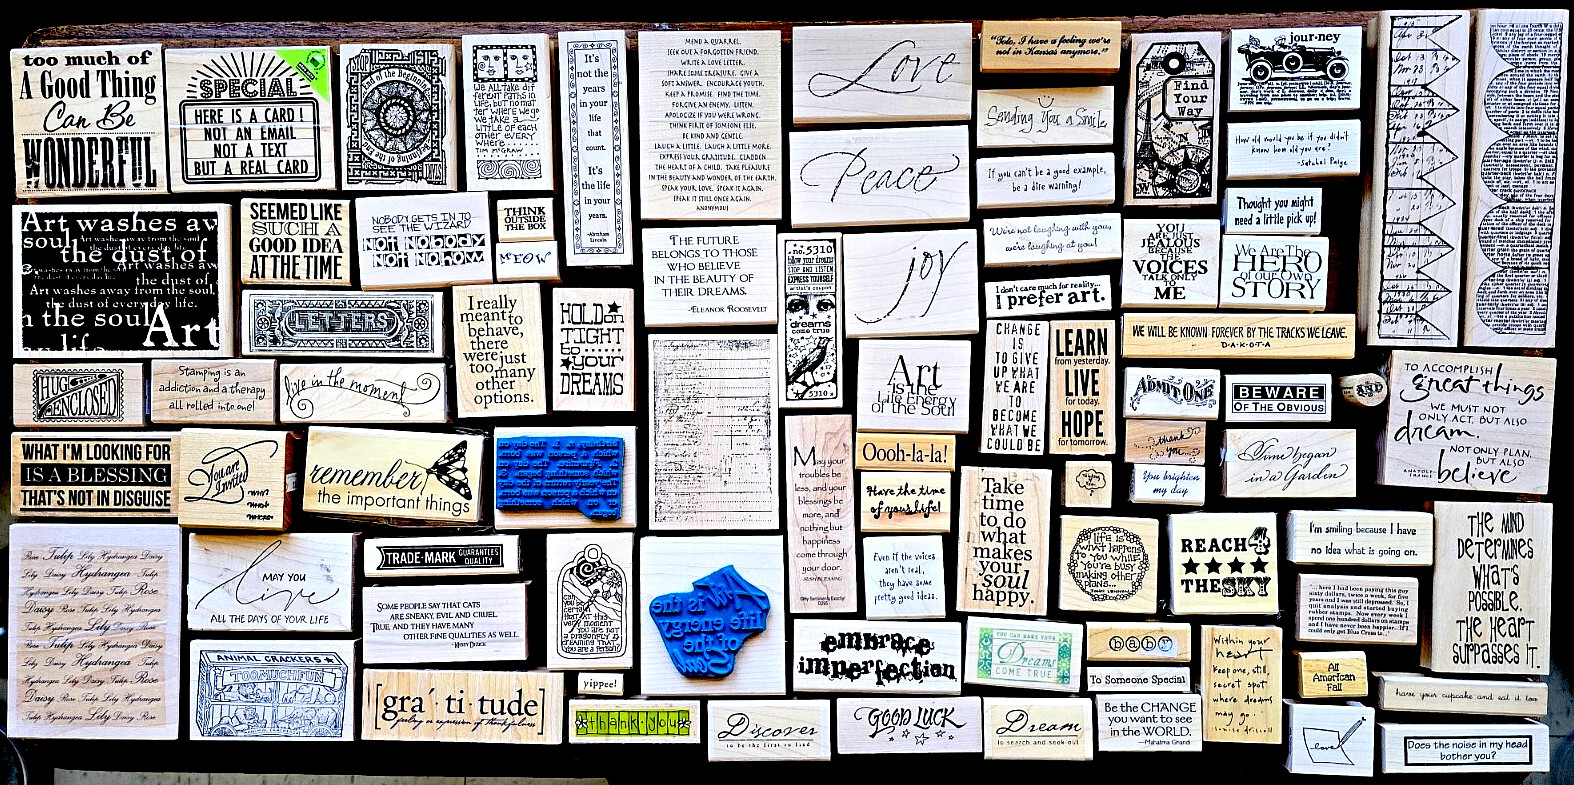 too much of
A Good Thing
Can Be
WONDERFUL
SPECIAL
HERE IS A CARD!
NOT AN EMAIL
NOT A TEXT
BUT A REAL CARD
STOP
End of the Beginning
Beginning of the End
we all take dif
ferent paths in
life, but no mat
ter where we go
we take a
little of each
other every
where.....
TIM McGRAW
It's
not the
years
in your
life
that
count.
It's
the life
in your
years.
Abraham
Lincoln
MEND A QUARREL.
SEEK OUT A FORGOTTEN FRIEND.
WRITE A LOVE LETTER.
SHARE SOME TREASURE. GIVE A
SOFT ANSWER. ENCOURAGE YOUTH.
KEEP A PROMISE. FIND THE TIME.
FORGIVE AN ENEMY. LISTEN.
APOLOGIZE IF YOU WERE WRONG.
THINK FIRST OF SOMEONE ELSE.
BE KIND AND GENTLE.
LAUGH A LITTLE. LAUGH A LITTLE MORE.
EXPRESS YOUR GRATITUDE. GLADDEN
THE HEART OF A CHILD. TAKE PLEASURE
IN THE BEAUTY AND WONDER OF THE EARTH.
SPEAK YOUR LOVE. SPEAK IT AGAIN.
SPEAK IT STILL ONCE AGAIN.
ANONYMOUS
Love
"Toto, I have a feeling we're
not in Kansas anymore."
Sending You a Smile
If you can't be a good example,
be a dire warning!
Find
Your
Way
jour·ney
How old would you be if you didn't
know how old you are?
-Satchel Paige
Peace
Art washes aw
soul
the dust of
Art washes away from the soul,
the dust of everyday life.
the soul
Art
SEEMED LIKE
SUCH A
GOOD IDEA
AT THE TIME
NOBODY GETS IN TO
SEE THE WIZARD
Not Nobody
Not Nohow
THINK
OUTSIDE
THE BOX
MEOW
THE FUTURE
BELONGS TO THOSE
WHO BELIEVE
IN THE BEAUTY OF
THEIR DREAMS.
-ELEANOR ROOSEVELT
no. 5310
follow your dreams
STOP AND LISTEN
EXPRESS YOURSELF
dreams
come true
5310
joy
We're not laughing with you,
we're laughing at you!
I don't care much for reality...
I prefer art.
YOU
ARE JUST
JEALOUS
BECAUSE
THE
VOICES
TALK ONLY
TO
ME
Thought you might
need a little pick up!
We Are The
HERO
of our Own
STORY
LETTERS
I really
meant to
behave,
there
were just
too many
other
options.
HOLD on
TIGHT
to
your
DREAMS
HUG
ENCLOSED
Stamping is an
addiction and a therapy
all rolled into one!
live in the moment
Art
is the
Life Energy
of the Soul
CHANGE
IS
TO GIVE
UP WHAT
WE ARE
TO
BECOME
WHAT WE
COULD BE
LEARN
from yesterday.
LIVE
for today.
HOPE
for tomorrow.
WE WILL BE KNOWN FOREVER BY THE TRACKS WE LEAVE.
D·A·K·O·T·A
ADMIT ONE
BEWARE
OF THE OBVIOUS
AND
TO ACCOMPLISH
great things
WE MUST NOT
ONLY ACT, BUT ALSO
dream.
NOT ONLY PLAN,
BUT ALSO
believe
ANATOLE
FRANCE
WHAT I'M LOOKING FOR
IS A BLESSING
THAT'S NOT IN DISGUISE
You are
Invited
WHAT
WHEN
WHERE
remember
the important things
May your
troubles be
less, and your
blessings be
more, and
nothing but
happiness
come through
your door.
IRISH BLESSING
Oooh-la-la!
Have the time
of your life!
thank
you
You brighten
my day
Time began
in a Garden
Take
time
to do
what
makes
your
soul
happy.
Rose Tulip Lily Hydrangea Daisy
Lily Daisy Hydrangea Tulip
MAY YOU
live
ALL THE DAYS OF YOUR LIFE
TRADE-MARK GUARANTEES QUALITY
SOME PEOPLE SAY THAT CATS
ARE SNEAKY, EVIL AND CRUEL.
TRUE, AND THEY HAVE MANY
OTHER FINE QUALITIES AS WELL.
MISSY DIZICK
can you be
certain
that at this
very moment
you are not
a dragonfly
dreaming that
you are a person?
Art is the
life energy
of the
Soul
Even if the voices
aren't real,
they have some
pretty good ideas.
Life is
what happens
to you while
you're busy
making other
plans...
JOHN LENNON
REACH 4
THE SKY
I'm smiling because I have
no idea what is going on.
... here I had been paying this guy
sixty dollars, twice a week, for five
years and I was still depressed. So, I
quit analysis and started buying
rubber stamps. Now every week I
spend one hundred dollars on stamps
and I have never been happier. If I
could only get Blue Cross to...
THE MIND
DETERMINES
WHAT'S
POSSIBLE.
THE HEART
SURPASSES IT.
ANIMAL CRACKERS
TOOMUCHFUN
[gra´·ti·tude]
feeling or expression of thankfulness
yippee!
thank·you
embrace
imperfection
YOU CAN MAKE YOUR
Dreams
COME TRUE
baby
To Someone Special
Within your
heart
keep one, still,
secret spot
where dreams
may go.
louise driscoll
All
American
Fall
have your cupcake and eat it too
Discover
to be the first to find
GOOD LUCK
Dream
to search and seek out
Be the CHANGE
you want to see
in the WORLD.
—Mahatma Gandhi
love
Does the noise in my head
bother you?